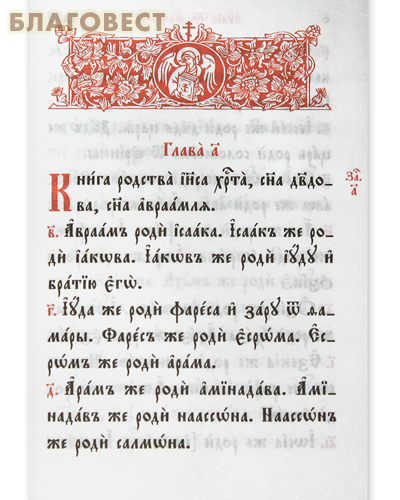 БЛАГОВЕСТ
Глава̀ а҃
Кни́га родства̀ і҆и҃са хр҇та̀, сн҃а дв҃до-
за҇
ва, сн҃а а҆враа́мля.
а҃
в҃. А҆враа́мъ родѝ і҆саа́ка. І҆саа́къ же ро-
дѝ і҆а́кѡва. І҆а́кѡвъ же родѝ і҆ꙋ́дꙋ и҆
бра́тїю є҆гѡ̀.
г҃. І҆ꙋ́да же родѝ фаре́са и҆ за́рꙋ ѿ ѳа-
ма́ры. Фаре́съ же родѝ є҆срѡ́ма. Є҆с-
рѡ́мъ же родѝ а҆ра́ма.
д҃. А҆ра́мъ же родѝ а҆мїнада́ва. А҆мї-
нада́въ же родѝ наассѡ́на. Наассѡ́нъ
же родѝ салмѡ́на.